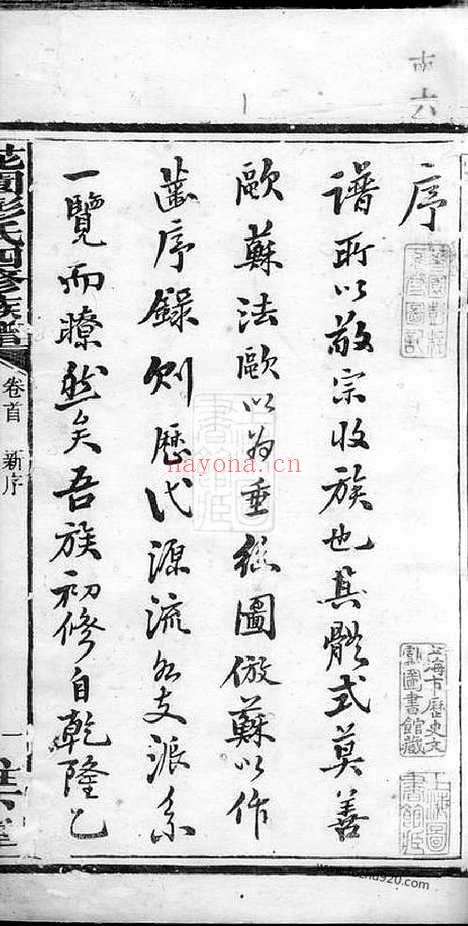 序
譜所以敬宗收族也其體式莫善
歐蘇法歐以為垂絲圖倣蘇以作
齒序錄則歷代源流各支派系
一覽而瞭然矣吾族初修自乾隆乙
花園彭氏四修族譜
卷首 新序
一
上海市歷史文
獻圖書館藏
上海圖
書館藏
nayona.cn